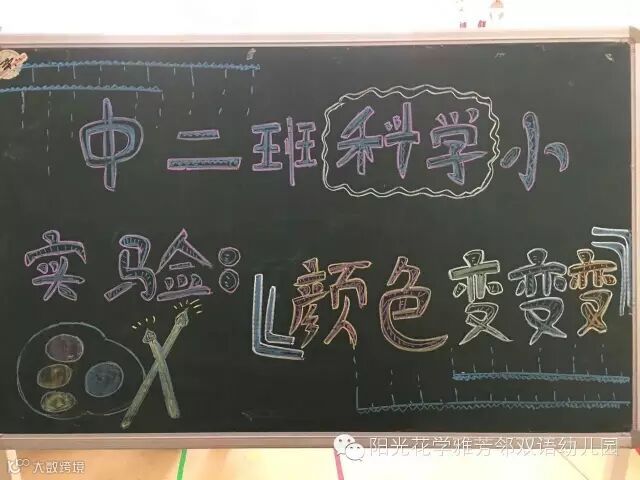 中二班科学小
实验:『颜色变变变』
阳光花学雅芳邻双语幼儿园
大数跨境